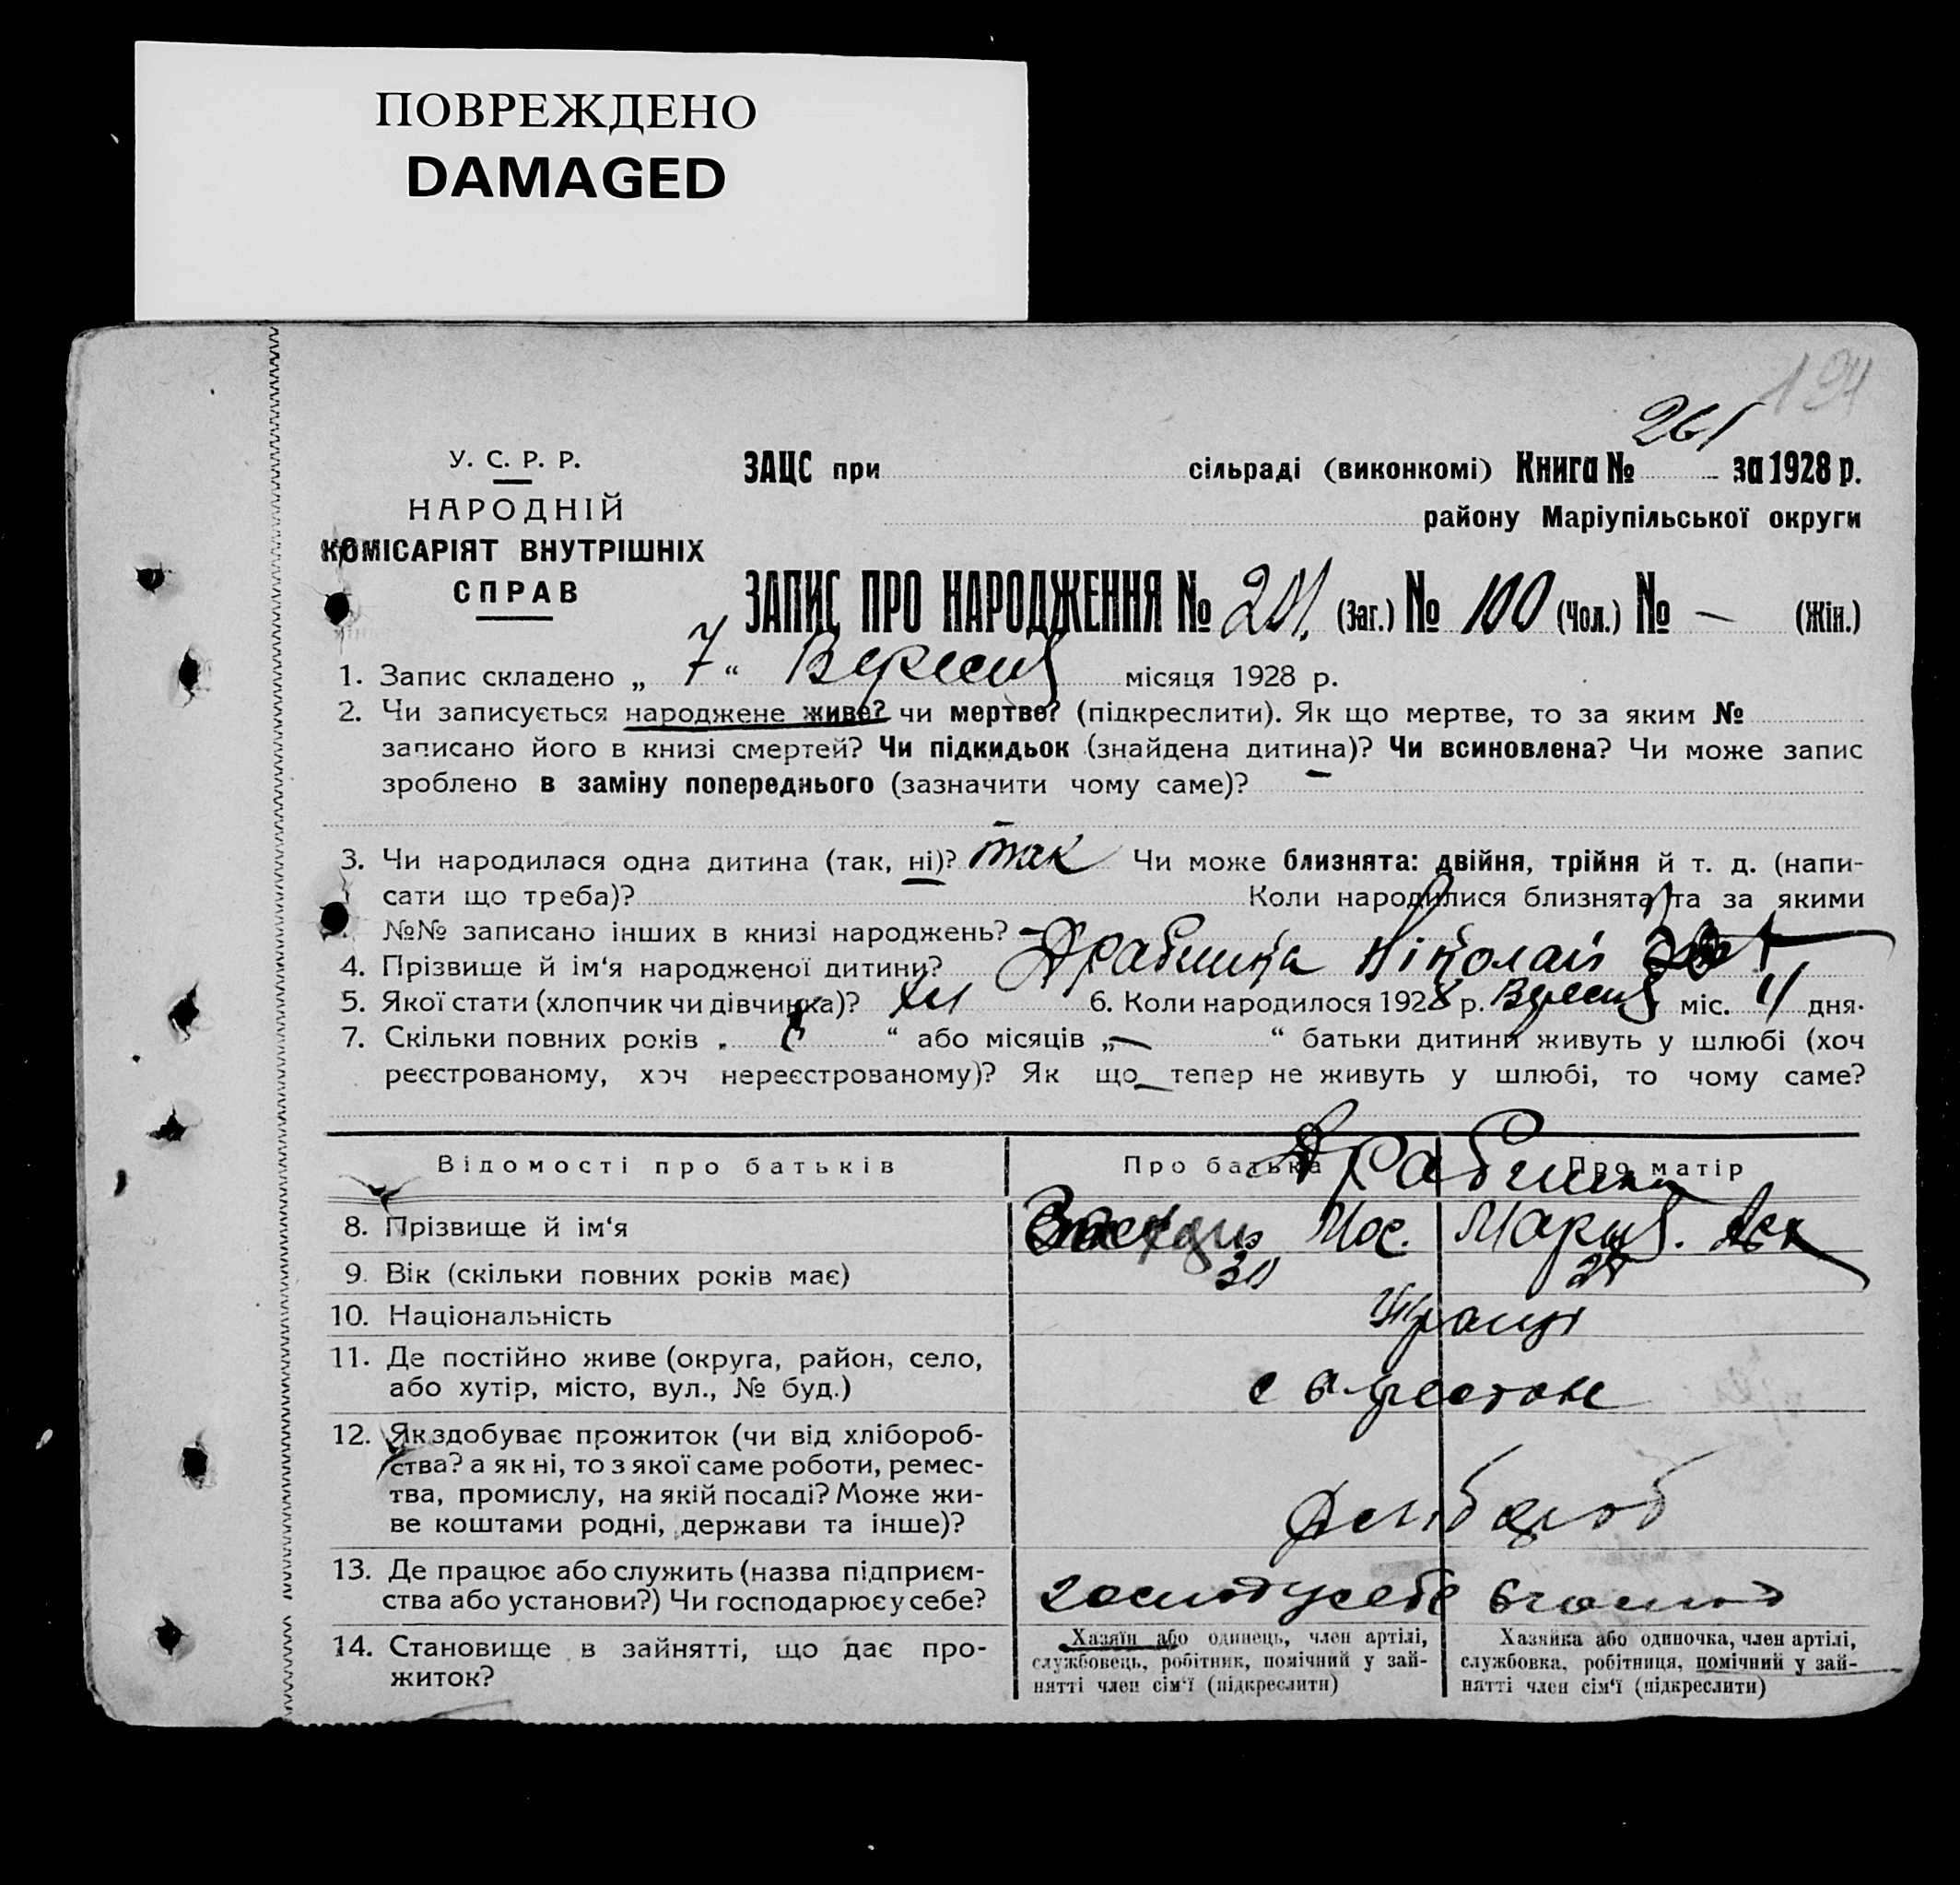 ПОВРЕЖДЕНО
DAMAGED
194
261
У. С. Р. Р.
НАРОДНІЙ
КОМІСАРІЯТ ВНУТРІШНІХ
СПРАВ
ЗАЦС при сільраді (виконкомі) Книга № за 1928 р.
району Маріупільської округи
ЗАПИС ПРО НАРОДЖЕННЯ № 201. (Заг.) № 100 (Чол.) № — (Жін.)
1. Запис складено „ 7 “ Вересня місяця 1928 р.
2. Чи записується народжене живе? чи мертве? (підкреслити). Як що мертве, то за яким №
записано його в книзі смертей? Чи підкидьок (знайдена дитина)? Чи всиновлена? Чи може запис
зроблено в заміну попереднього (зазначити чому саме)? —
3. Чи народилася одна дитина (так, ні)? так Чи може близнята: двійня, трійня й т. д. (напи-
сати що треба)? Коли народилися близнята та за якими
№№ записано інших в книзі народжень? —
4. Прізвище й ім‘я народженої дитини? Ніколай
5. Якої стати (хлопчик чи дівчинка)? хл 6. Коли народилося 1928 р. Вересня міс. 4 дня.
7. Скільки повних років „ “ або місяців „— “ батьки дитини живуть у шлюбі (хоч
реєстрованому, хоч нереєстрованому)? Як що тепер не живуть у шлюбі, то чому саме?
Відомості про батьків Про батька Про матір
8. Прізвище й ім‘я Мария.
9. Вік (скільки повних років має) 30
10. Національність Украци
11. Де постійно живе (округа, район, село,
або хутір, місто, вул., № буд.)
12. Як здобуває прожиток (чи від хлібороб-
ства? а як ні, то з якої саме роботи, ремес-
тва, промислу, на якій посаді? Може жи-
ве коштами родні, держави та інше)?
13. Де працює або служить (назва підприєм-
ства або установи?) Чи господарює у себе?
14. Становище в зайнятті, що дає про-
житок?
Хазяїн або одинець, член артілі,
службовець, робітник, помічний у зай-
нятті член сім‘ї (підкреслити)
Хазяйка або одиночка, член артілі,
службовка, робітниця, помічний у зай-
нятті член сім‘ї (підкреслити)